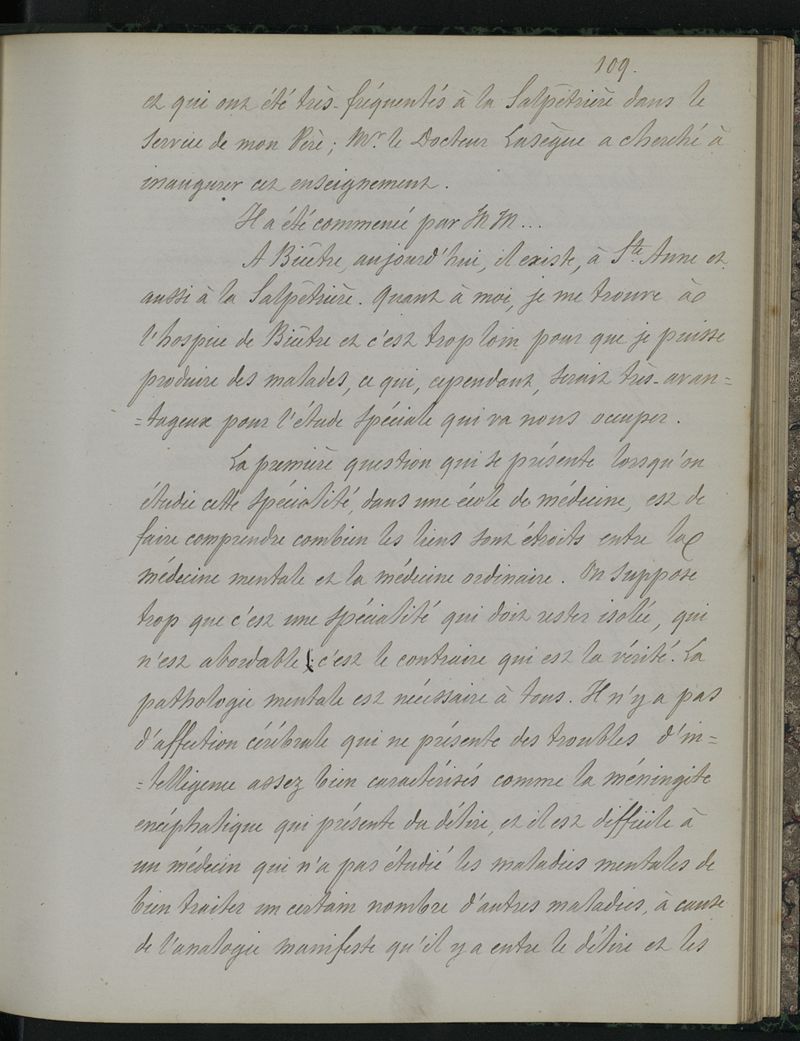 109.
et qui ont été très-fréquentés à la Salpêtrière dans le
service de mon Père ; Mr. le Docteur Lasègue a cherché à
inaugurer cet enseignement.
Il a été commencé par MM...
A Bicêtre, aujourd'hui, il existe, à Ste. Anne et
aussi à la Salpêtrière. Quant à moi, je me trouve à
l'hospice de Bicêtre et c'est trop loin pour que je puisse
produire des malades, ce qui, cependant, serait très-avan=
=tageux pour l'étude spéciale qui va nous occuper.
La première question qui se présente lorsqu'on
étudie cette spécialité, dans une école de médecine, est de
faire comprendre combien les liens sont étroits entre la
médecine mentale et la médecine ordinaire. On suppose
trop que c'est une spécialité qui doit rester isolée, qui
n'est abordable ; c'est le contraire qui est la vérité. La
pathologie mentale est nécessaire à tous. Il n'y a pas
d'affection cérébrale qui ne présente des troubles d'in=
=telligence assez bien caractérisés comme la méningite
encéphalique qui présente du délire, et il est difficile à
un médecin qui n'a pas étudié les maladies mentales de
bien traiter un certain nombre d'autres maladies, à cause
de l'analogie manifeste qu'il y a entre le délire et les